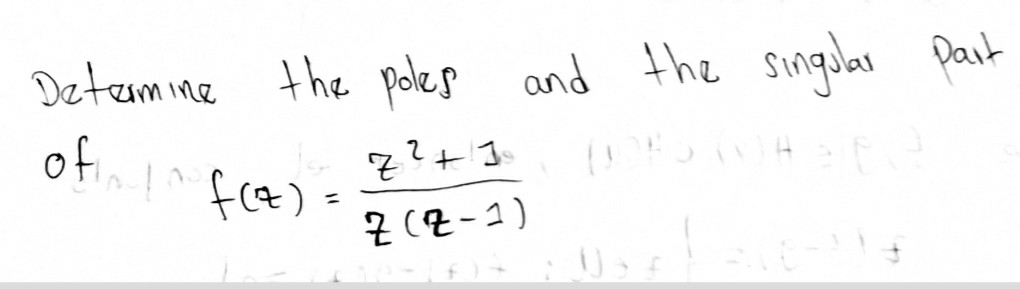 Determine the poles and the singular part
of f(z) = z²+1 / z(z-1)